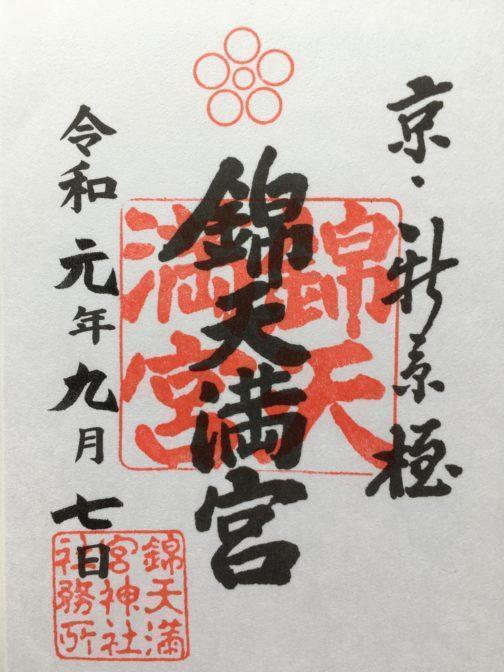 京・新京極
錦天満宮
錦天
満宮
令和元年九月七日
錦天満
宮神社
社務所